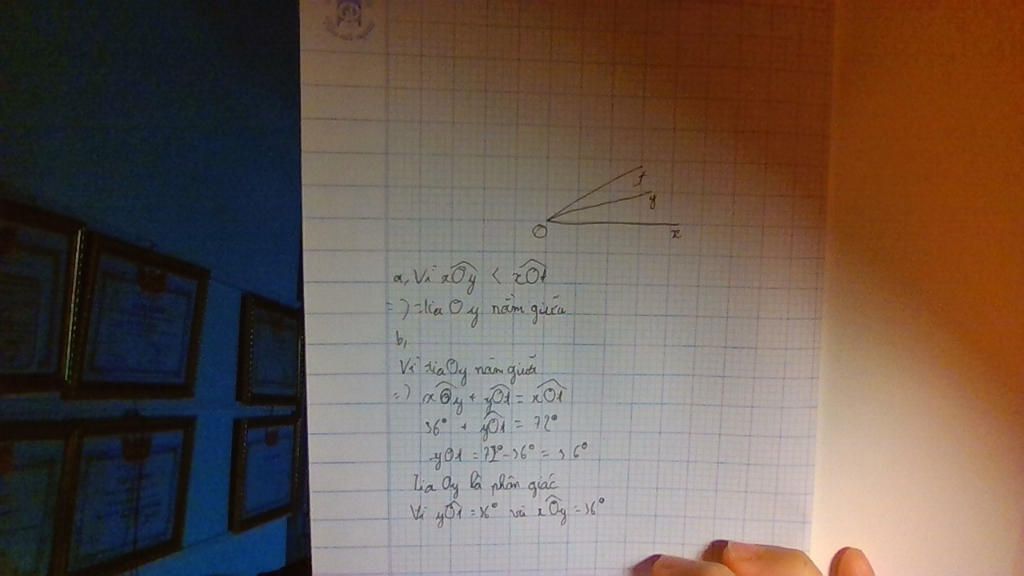 t
y
O
x
a, Vì xOy < xOt
=) tia Oy nằm giữa
b,
Vì tia Oy nằm giữa
=) xOy + yOt = xOt
36° + yOt = 72°
yOt = 72° - 36° = 36°
Tia Oy là phân giác
Vì yOt = 36° và xOy = 36°